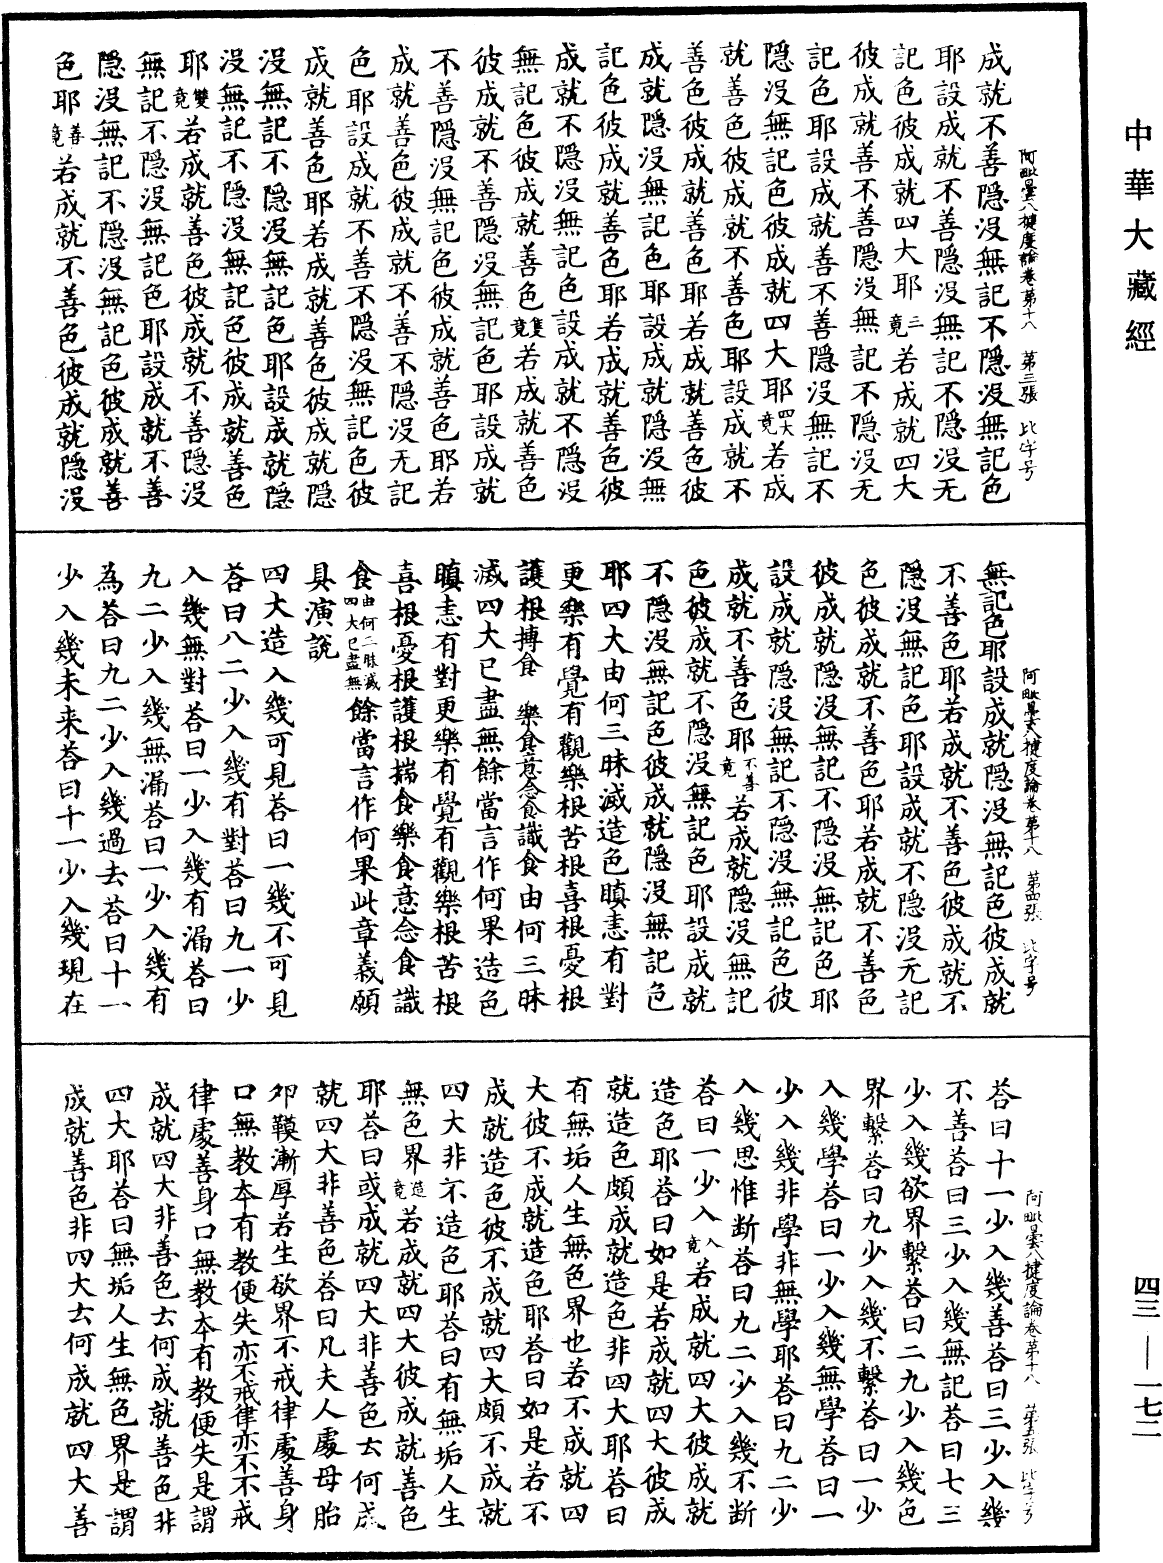 中華大藏經
阿毗曇八揵度論卷第十八　第三張　比字号
成就不善隱没無記不隱没無記色
耶設成就不善隱没無記不隱没无
記色彼成就四大耶三竟若成就四大
彼成就善不善隱没無記不隱没无
記色耶設成就善不善隱没無記不
隱没無記色彼成就四大耶四大竟若成
就善色彼成就不善色耶設成就不
善色彼成就善色耶若成就善色彼
成就隱没無記色耶設成就隱没無
記色彼成就善色耶若成就善色彼
成就不隱没無記色設成就不隱没
無記色彼成就善色隻竟若成就善色
彼成就不善隱没無記色耶設成就
不善隱没無記色彼成就善色耶若
成就善色彼成就不善不隱没无記
色耶設成就不善不隱没無記色彼
成就善色耶若成就善色彼成就隱
没無記不隱没無記色耶設成就隱
没無記不隱没無記色彼成就善色
耶雙竟若成就善色彼成就不善隱没
無記不隱没無記色耶設成就不善
隱没無記不隱没無記色彼成就善
色耶善竟若成就不善色彼成就隱没
阿毗曇八揵度論卷第十八　第四張　比字号
無記色耶設成就隱没無記色彼成就
不善色耶若成就不善色彼成就不
隱没無記色耶設成就不隱没无記
色彼成就不善色耶若成就不善色
彼成就隱没無記不隱没無記色耶
設成就隱没無記不隱没無記色彼
成就不善色耶不善竟若成就隱没無記
色彼成就不隱没無記色耶設成就
不隱没無記色彼成就隱没無記色
耶四大由何三昧滅造色瞋恚有對
更樂有覺有觀樂根苦根喜根憂根
護根摶食　樂食意念食識食由何三昧
滅四大已盡無餘當言作何果造色
瞋恚有對更樂有覺有觀樂根苦根
喜根憂根護根揣食樂食意念食識
食由何三昧滅四大已盡無餘當言作何果此章義願
具演說
四大造入幾可見荅曰一幾不可見
荅曰八二少入幾有對荅曰九一少
入幾無對荅曰一少入幾有漏荅曰
九二少入幾無漏荅曰一少入幾有
為荅曰九二少入幾過去荅曰十一
少入幾未来荅曰十一少入幾現在
阿毗曇八揵度論卷第十八　第五張　比字号
荅曰十一少入幾善荅曰三少入幾
不善荅曰三少入幾無記荅曰七三
少入幾欲界繫荅曰二九少入幾色
界繫荅曰九少入幾不繫荅曰一少
入幾學荅曰一少入幾無學荅曰一
少入幾非學非無學耶荅曰九二少
入幾思惟斷荅曰九二少入幾不斷
荅曰一少入入竟若成就四大彼成就
造色耶荅曰如是若成就四大彼成
就造色頗成就造色非四大耶荅曰
有無垢人生無色界也若不成就四
大彼不成就造色耶荅曰如是若不
成就造色彼不成就四大頗不成就
四大非不造色耶荅曰有無垢人生
無色界造竟若成就四大彼成就善色
耶荅曰或成就四大非善色去何成
就四大非善色荅曰凡夫人處母胎
夘𩎟漸厚若生欲界不戒律處善身
口無教本有教便失亦不戒律亦不不戒
律處善身口無教本有教便失是謂
成就四大非善色去何成就善色非
四大耶荅曰無垢人生無色界是謂
成就善色非四大去何成就四大善
四三——一七二